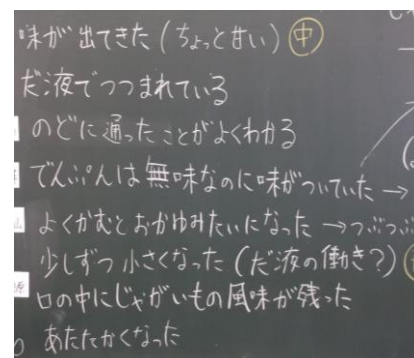 味が出てきた(ちょっと甘い) 中
だ液でつつまれている
のどに通ったことがよくわかる
でんぷんは無味なのに味がついていた→
山 よくかむとおかゆみたいになった→つぶつぶ
少しずつ小さくなった(だ液の働き?)
口の中にじゃがいもの風味が残った
あたたかくなった